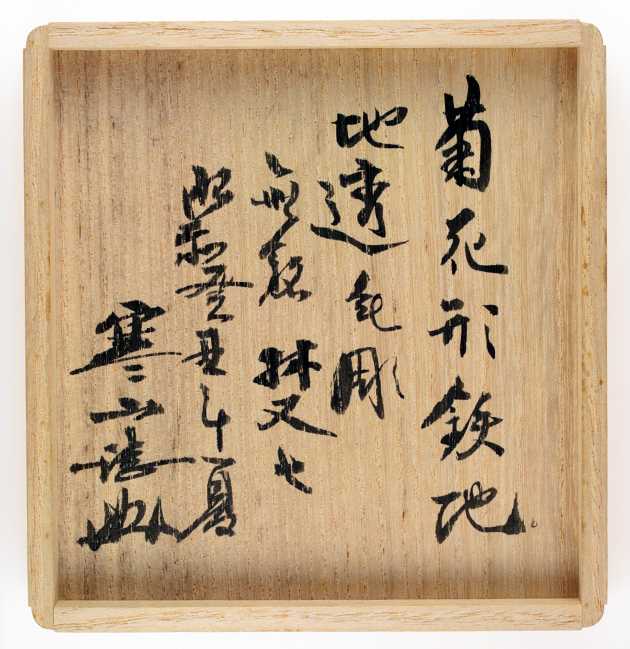 菊花形鉄地
地透毛彫
無銘 林又七
昭和癸丑年夏
寒山誌